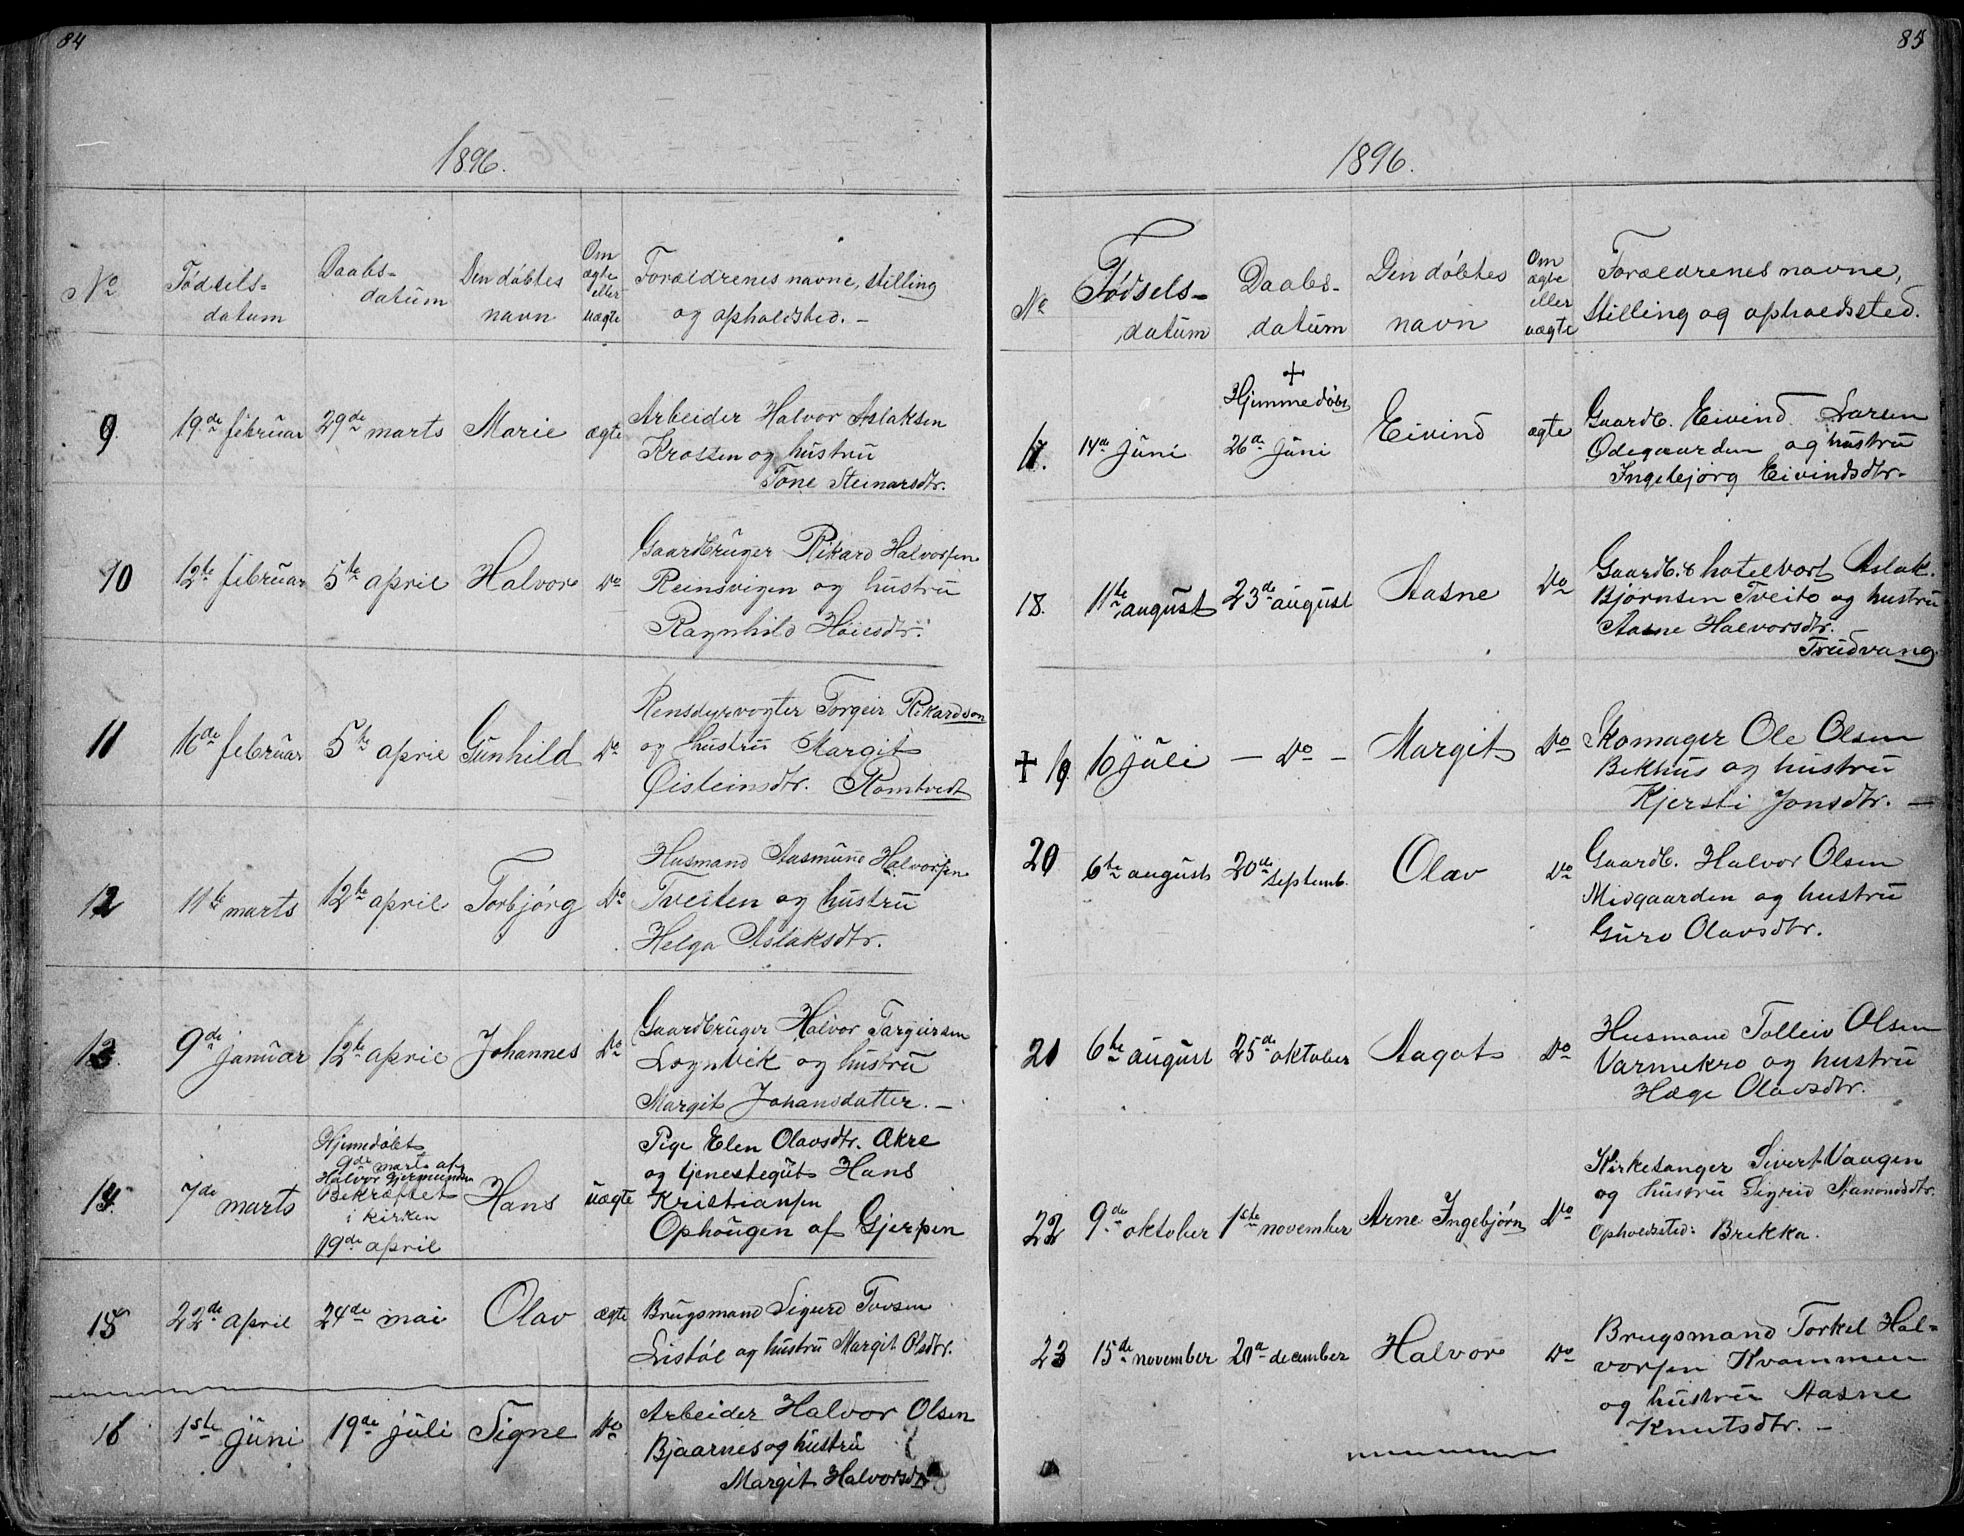 84
1896.
No
Fødsels-
datum
Daabs-
datum
Den døbtes
navn
Om
ægte
eller
uægte
Forældrenes navne, stilling
og opholdsted. -
9
19de februar
29de marts
Marie
ægte
Arbeider Halvor Aslaksen
Krossen og hustru
Tone Steinarsdtr.
10
12te februar
5te april
Halvor
Do
Gaardbruger Rikard Halvorsen
Reinsvigen og hustru
Ragnhild
11
16de februar
5te april
Gunhild
Do
Rensdyrvogter Torgeir Rikardson
og hustru Margit
Øisteinsdtr. Romtvedt
12
11te marts
12te april
Torbjørg
Do
Husmand Aasmund Halvorsen
Tveiten og hustru
Helga Aslaksdtr.
13
9de januar
12te april
Johannes
Do
Gaardbruger Halvor Targeirsen
Lognvik og hustru
Margit Johansdatter. -
14
7de marts
Hjemedøbt
9de marts af
Halvor Gjermundsen
Bekræftet
i kirken
19de april
Hans
uægte
Pige Elen Olavsdtr. Akre
og tjenestegut Hans
Kristiansen
Ophougen af Gjerpen
15
22de april
24de mai
Olav
ægte
Brugsmand Sigurd Tovsen
Listøl og hustru Margit Olsdtr.
16
1ste juni
19de juli
Signe
Do
Arbeider Halvor Olsen
Bjaarnes og hustru
Margit Halvorsdtr
85
1896.
No
Fødsels-
datum
Daabs-
datum
Den døbtes
navn
Om
ægte
eller
uægte
Forældrenes navne,
stilling og opholdssted.
17.
14de juni
+
Hjemmedøbt
26de juni
Eivind
ægte
Gaardb. Eivind Larsen
Ødegaarden og hustru
Ingebjørg Eivindsdtr.
18.
11te august
23de august
Aasne
Do
Gaardb. & hotelvært Aslak
Bjørnsen Tveito og hustru
Aasne Halvorsdtr.
Trudvang
+ 19
16 juli
- Do -
Margit
Do
Skomager Ole Olsen
Bekhus og hustru
Kjersti Jonsdtr. -
20
6te august
20de septemb.
Olav
Do
Gaardb. Halvor Olsen
Midgaarden og hustru
Guro Olavsdtr.
21
6te august
25de oktober
Aagot
Do
Husmand Tolleiv Olsen
Varmekro og hustru
Hæge Olavsdtr.
22
9de oktober
1ste november
Arne Ingebjørn
Do
Kirkesanger Sivert Vaagen
og hustru Sigrid
Opholdsted: Brekka.
23
15de november
20de december
Halvor
Do
Brugsmand Torkel Hal-
vorsen Kvammen
og hustru Aasne
Knutsdtr. -